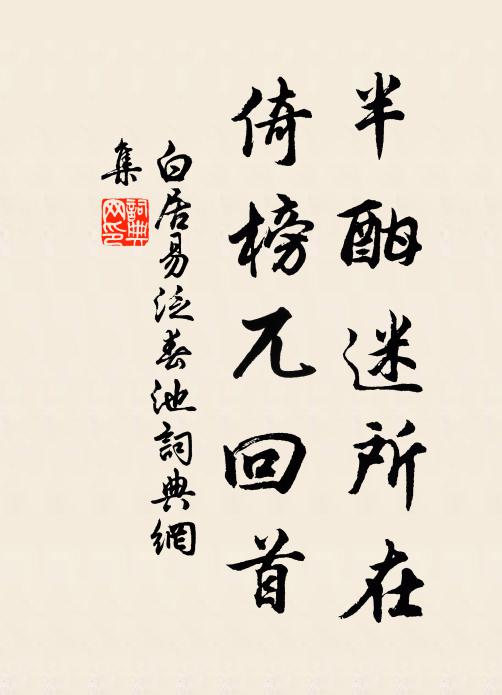 半酣迷所在
倚榜兀回首
白居易泛春池詞典網
集
詞典
网印